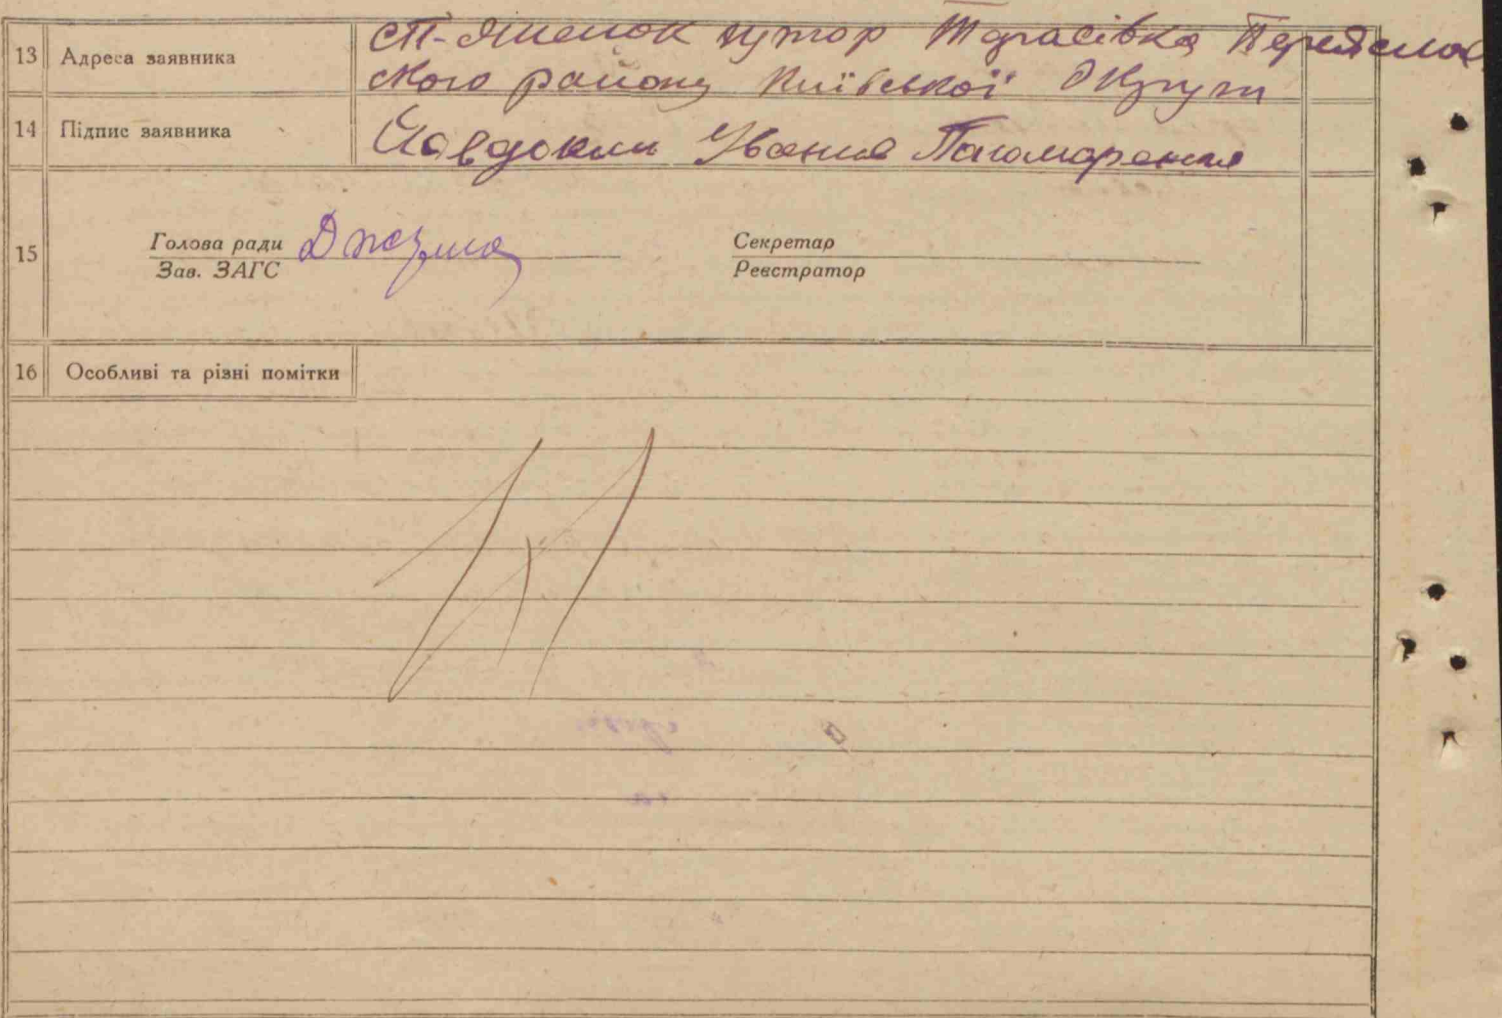 13 Адреса заявника хутор Тарасівка Переяслав
ського району Київської Округи
14 Підпис заявника Явдоким Іванов Пономаренко
15 Голова ради Секретар
Зав. ЗАГС Реєстратор
16 Особливі та різні помітки